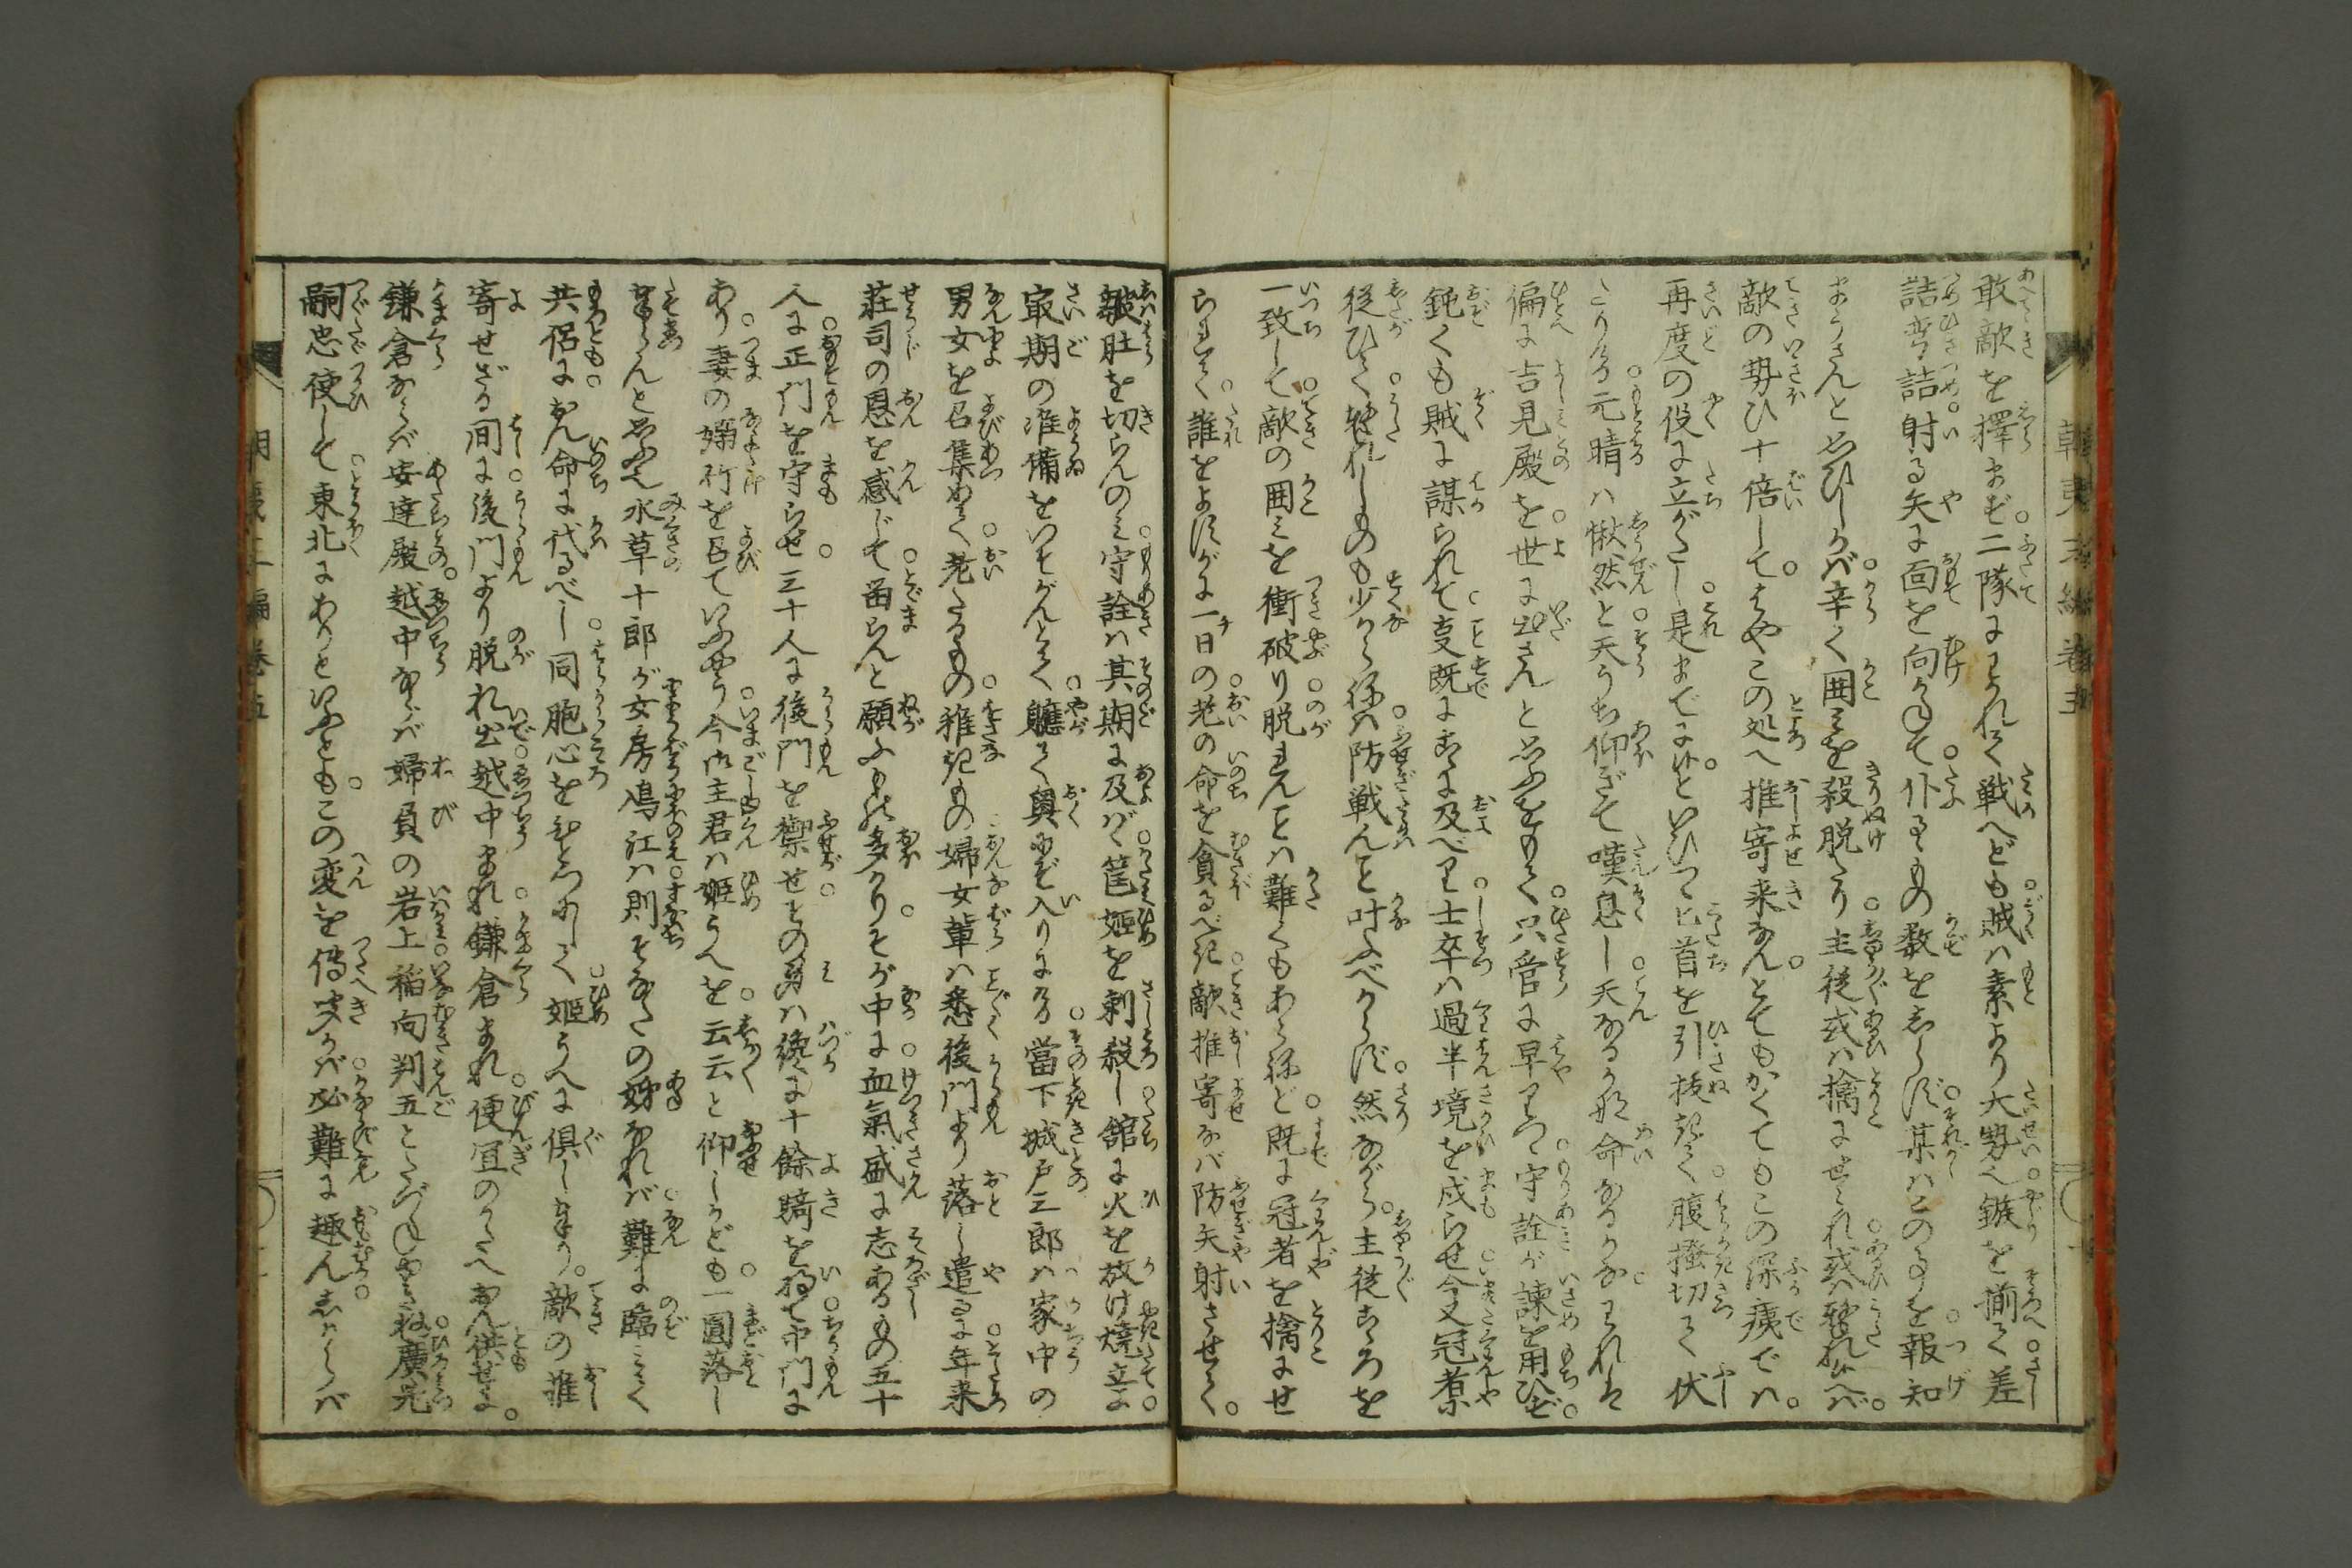 敢敵を擇まず。二隊にわかれて戦へども。賊は素より大勢也。鏃を揃て差
詰弯詰。射る矢に面を向かねて。仆るゝもの数をしらず。某はこの事を。報知
まうさんと思ひしかば。辛く囲みを殺脱たり。主従或は擒にせられ。或は撃れ候へば。
敵の勢ひ十倍して。はやこの処へ推寄来なんとす。とてもかくてもこの深痍では。
再度の役に立がたし。是までに候。といひつゝ匕首を引抜きて。腹掻切て伏
たりける。元晴は愀然と。天うち仰ぎて嘆息し。天なるかな命なるかな。われは
偏に吉見殿を。世に出さんと思ふをもて。只管に早りつゝ。守詮が諫を用ひず。
鈍くも賊に謀られて。事既にこゝに及べり。士卒は過半境を戍らせ。今又冠者
従ひて。撃れしもの も少からねば。防戦んこと叶ふべからず。然ながら。主従こゝろを
一致して。敵の囲みを衝破り。脱れんことは難くもあらねど。既に冠者を擒にせ
られて。誰をよすがに一日の。老の命を貪るべき。敵推寄なば防矢射させて。
皺肚を切らんのみ。守詮は其期に及ばゞ。筐姫を刺殺し。舘に火を放け焼立よ。
冣期の准備をいそがんとて。軈て奥にぞ入りにける。當下城戸三郎は。家中の
男女を召集めて。老たるもの。稚きもの。婦女輩は。悉後門より落し遣るに。年来
荘司の恩を感じて。畄らんと願ふもの多かり。そが中に。血氣盛に志あるもの五十
人に。正門を守らせ。三十人に後門を禦せ。その身は纔に十餘騎を将て。中門に
あり。妻の嫋竹を召ていふやう。今御主君は姫うへを。云云と仰しかども。一圓落し
まゐらせんと思ふ也。水草十郎が女房鳰江は。則そなたの姉なれば。難に臨みて
共侶に。おん命に代るべし。同胞心をひとつにして。姫うへに倶しまゐらせ。敵の推
寄せざる間に。後門より脱れ出。越中まれ。鎌倉まれ。便宜のかたへおん供せよ。
鎌倉ならば安達殿。越中ならば婦負の岩上。稲向判五とたづねゆきね。廣光
嗣忠使して。東北にありといふとも。この変を傳聞かば。必難に趣ん。しからば